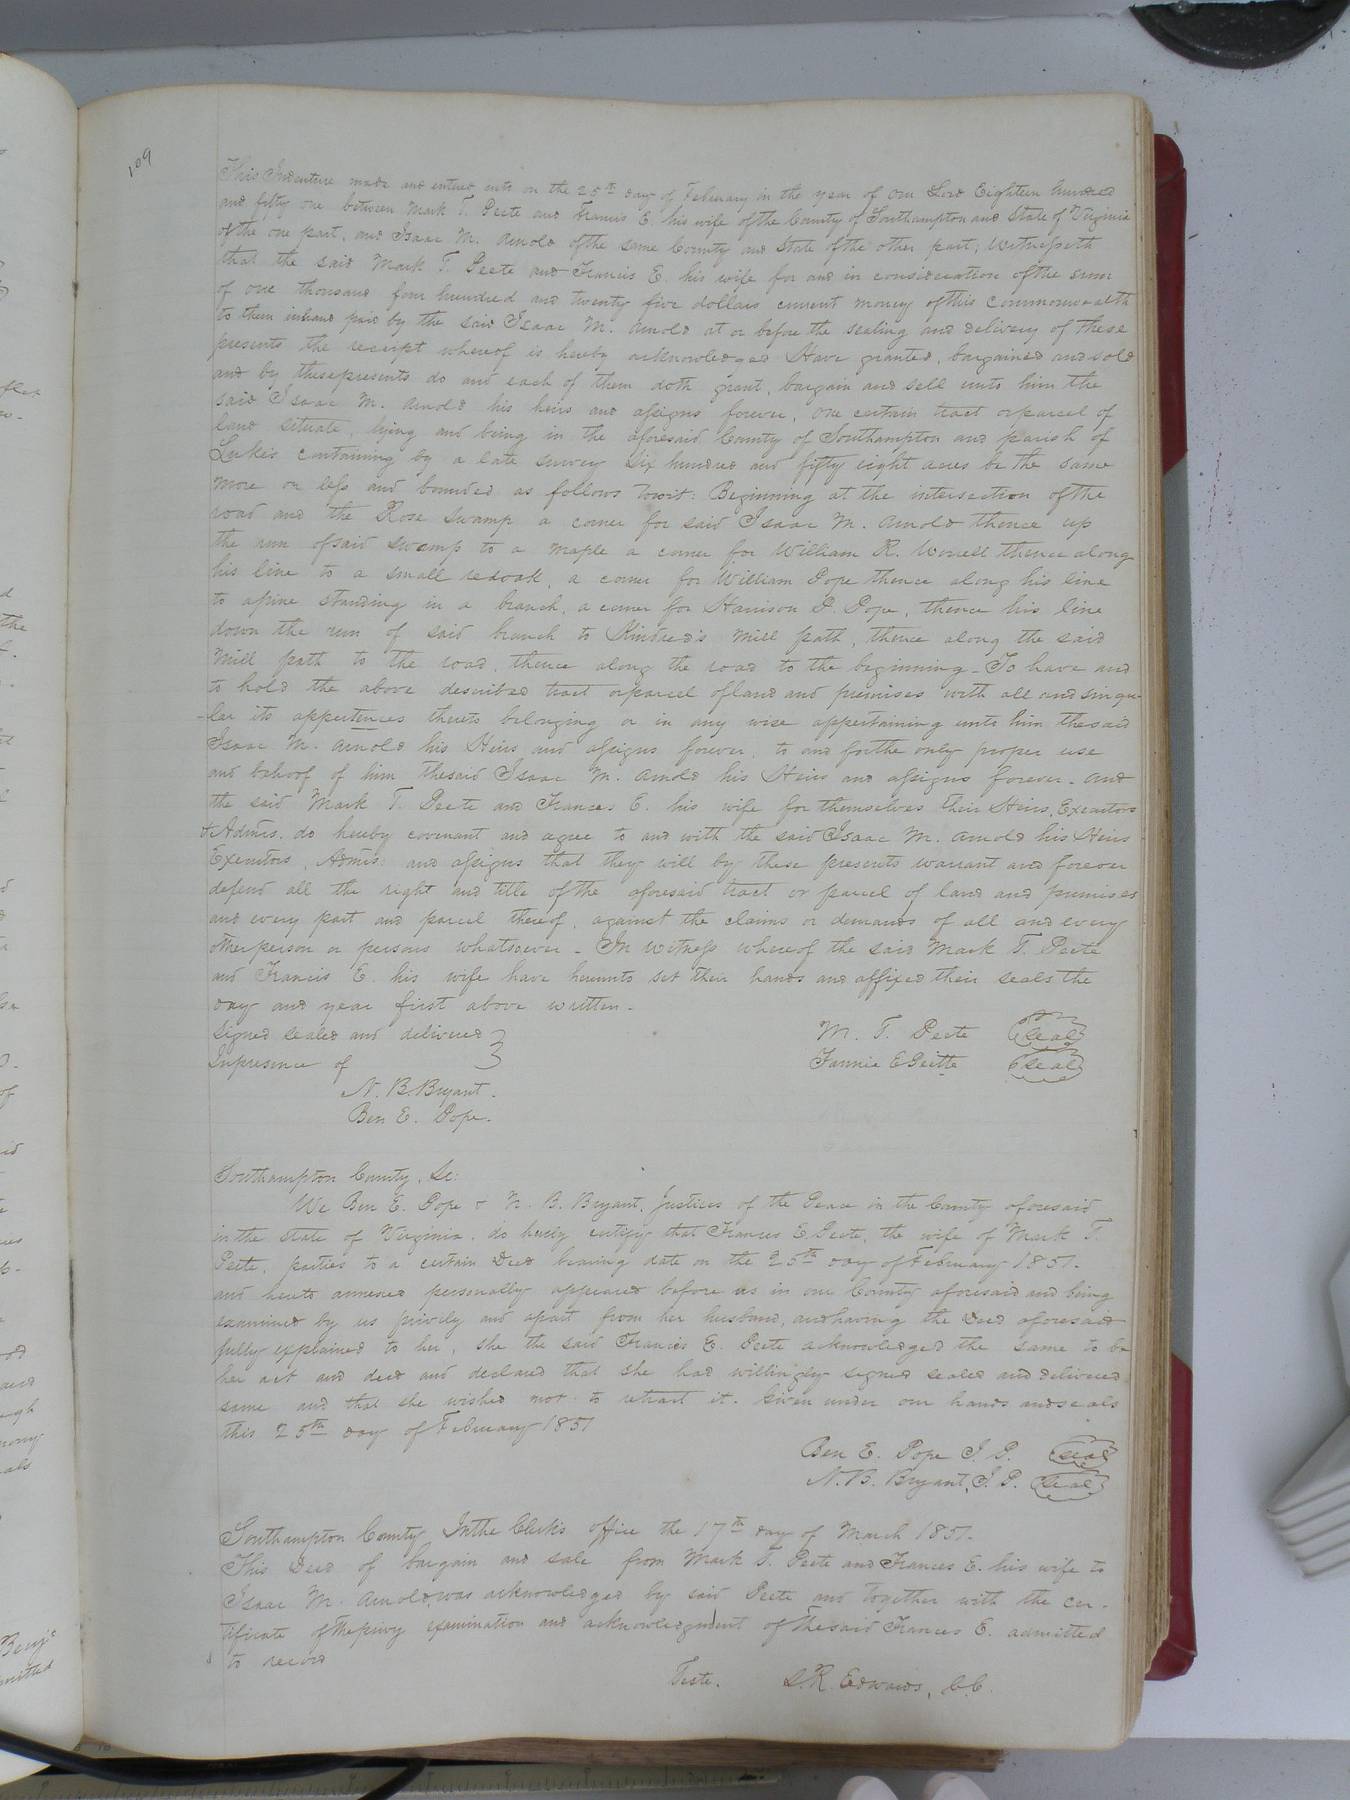 109
This Indenture made and entered into on the 25th day of February in the year of our Lord Eighteen hundred
and fifty one between Mark T. Peete and Francis E. his wife of the County of Southampton and State of Virginia
of the one part, and Isaac M. Arnold of the same County and State of the other part, Witnesseth
that the said Mark T. Peete and Francis E. his wife for and in consideration of the sum
of one thousand four hundred and twenty five dollars current money of this commonwealth
to them inhand paid by the said Isaac M. Arnold at or before the sealing and delivery of these
presents the receipt whereof is hereby acknowledged Have granted, bargained and sold
and by these presents do and each of them doth grant, bargain and sell unto him the
said Isaac M. Arnold his heirs and assigns forever, one certain tract or parcel of
land situate, lying and being in the aforesaid County of Southampton and parish of
Lukes containing by a late survey six hundred and fifty eight acres be the same
more or less and bounded as follows Towit: Beginning at the intersection of the
road and the Rose swamp a corner for said Isaac M. Arnold thence up
the run of said swamp to a maple a corner for William R. Worrell thence along
his line to a small redoak, a corner for William Pope thence along his line
to a pine standing in a branch, a corner for Harrison P. Pope, thence his line
down the run of said branch to Kindred's Mill path, thence along the said
Mill path to the road, thence along the road to the beginning - To have and
to hold the above described tract or parcel of land and premises with all and singu-
-lar its appertences thereto belonging or in any wise appertaining unto him the said
Isaac M. Arnold his Heirs and assigns forever, to and for the only proper use
and behoof of him the said Isaac M. Arnold his Heirs and assigns forever - and
the said Mark T. Peete and Frances E. his wife for themselves their Heirs, Executors
& Admrs. do hereby covenant and agree to and with the said Isaac M. Arnold his Heirs
Executors, Admrs. and assigns that they will by these presents warrant and forever
defend all the right and title of the aforesaid tract or parcel of land and premises
and every part and parcel thereof, against the claims or demands of all and every
other person or persons whatsoever - In Witness whereof the said Mark T. Peete
and Francis E. his wife have hereunto set their hands and affixed their seals the
day and year first above written -
Signed sealed and delivered } M. T. Peete (seal)
In presence of Fannie E Peitte (seal)
N. B. Bryant.
Ben E. Pope.
Southampton County, Sc:
We Ben E. Pope & N. B. Bryant, Justices of the Peace in the County aforesaid
in the state of Virginia, do hereby certify that Frances E. Peete, the wife of Mark T.
Peete, parties to a certain Deed bearing date on the 25th day of February 1851.
and hereto annexed personally appeared before us in our County aforesaid and being
examined by us privily and apart from her husband, and having the Deed aforesaid
fully explained to her, she the said Francis E. Peete acknowledged the same to be
her act and deed and declared that she had willingly signed sealed and delivered
same and that she wished not to retract it. Given under our hands and seals
this 25th day of February 1851
Ben E. Pope J. P. (seal)
N. B. Bryant, J. P. (seal)
Southampton County In the Clerk's office the 17th day of March 1851.
This Deed of bargain and sale from Mark T. Peete and Frances E. his wife to
Isaac M. Arnold, was acknowledged by said Peete and together with the cer-
tificate of the privy examination and acknowledgment of the said Frances E. admitted
to record
Teste. L. R. Edwards, C. C.